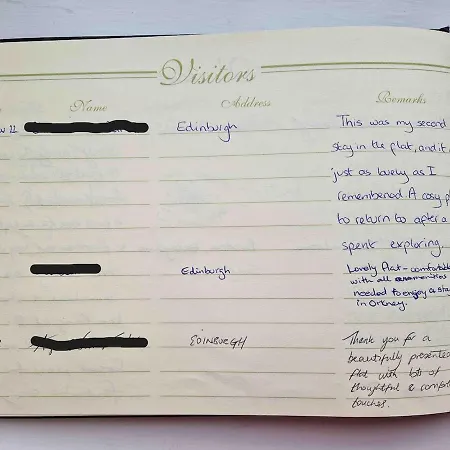 Visitors
Name Address Remarks
Edinburgh This was my second
stay in the flat, and it
just as lovely as I
remembered. A cosy
to return to after a
spent exploring
Edinburgh Lovely flat - comfortable
with all amenities
needed to enjoy a
in Orkney.
EDINBURGH Thank you for a
beautifully presented
flat with lots of
thoughtful &
touches.